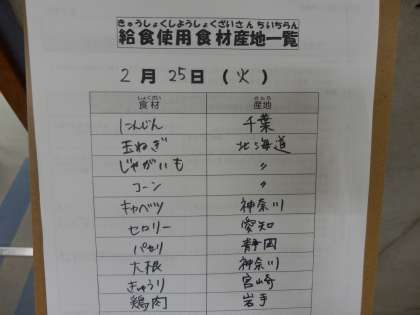 きゅうしょくしようしょくざいさんちいちらん
給食使用食材産地一覧
2月25日(火)
しょくざい さんち
食材 産地
にんじん 千葉
玉ねぎ 北海道
じゃがいも 〃
コーン 〃
キャベツ 神奈川
セロリー 愛知
パセリ 静岡
大根 神奈川
きゅうり 宮崎
鶏肉 岩手